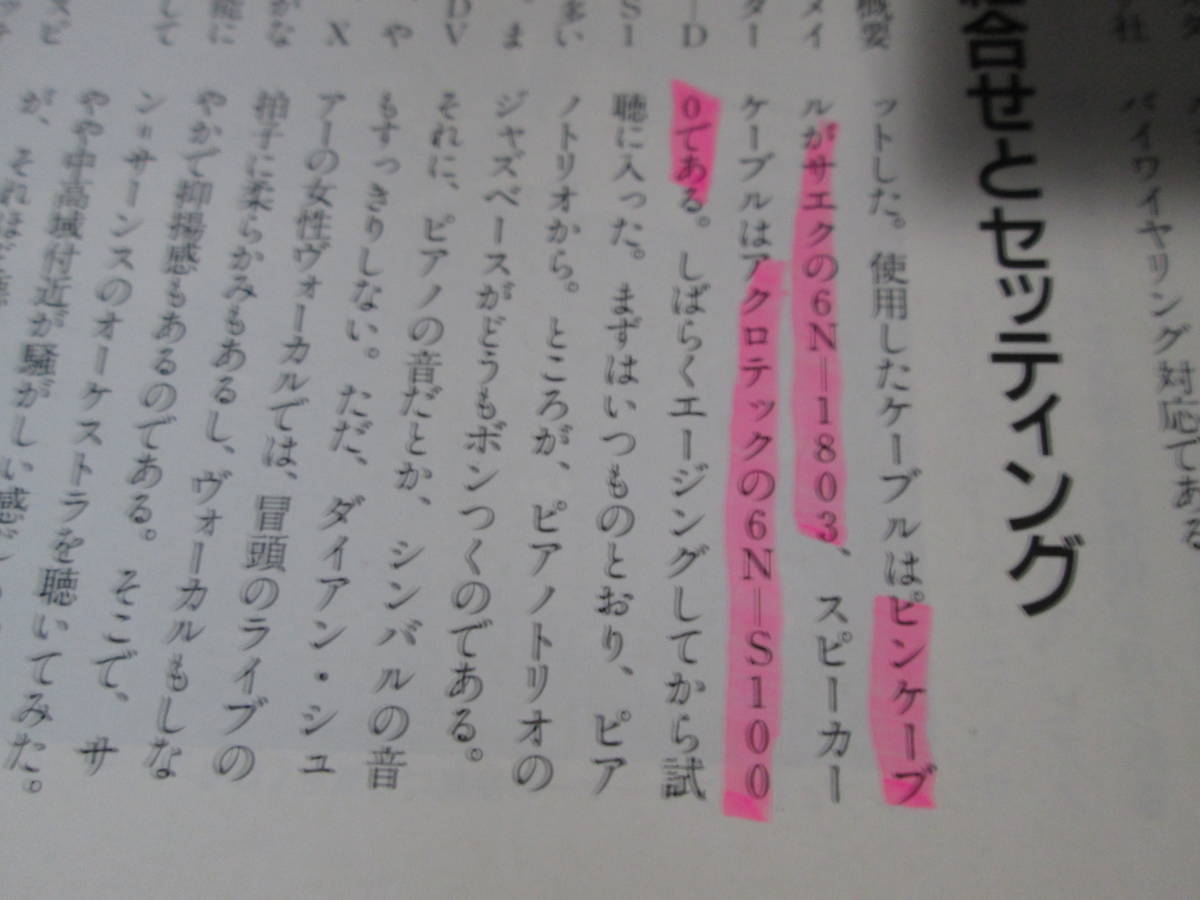 バイワイヤリング対応である
合せとセッティング
ットした。使用したケーブルはピンケーブ
ルがサエクの6N―1803、スピーカー
ケーブルはアクロテックの6N―S100
0である。しばらくエージングしてから試
聴に入った。まずはいつものとおり、ピア
ノトリオから。ところが、ピアノトリオの
ジャズベースがどうもボンつくのである。
それに、ピアノの音だとか、シンバルの音
もすっきりしない。ただ、ダイアン・シュ
アーの女性ヴォーカルでは、冒頭のライブの
拍子に柔らかみもあるし、ヴォーカルもしな
やかで抑揚感もあるのである。そこで、サ
ン＝サーンスのオーケストラを聴いてみた。
やや中高域付近が騒がしい感じ
が、それほど
概要
メイ
ター
―D
S1
多い
。ま
DV
、や
X
がな
して
能に
スピ